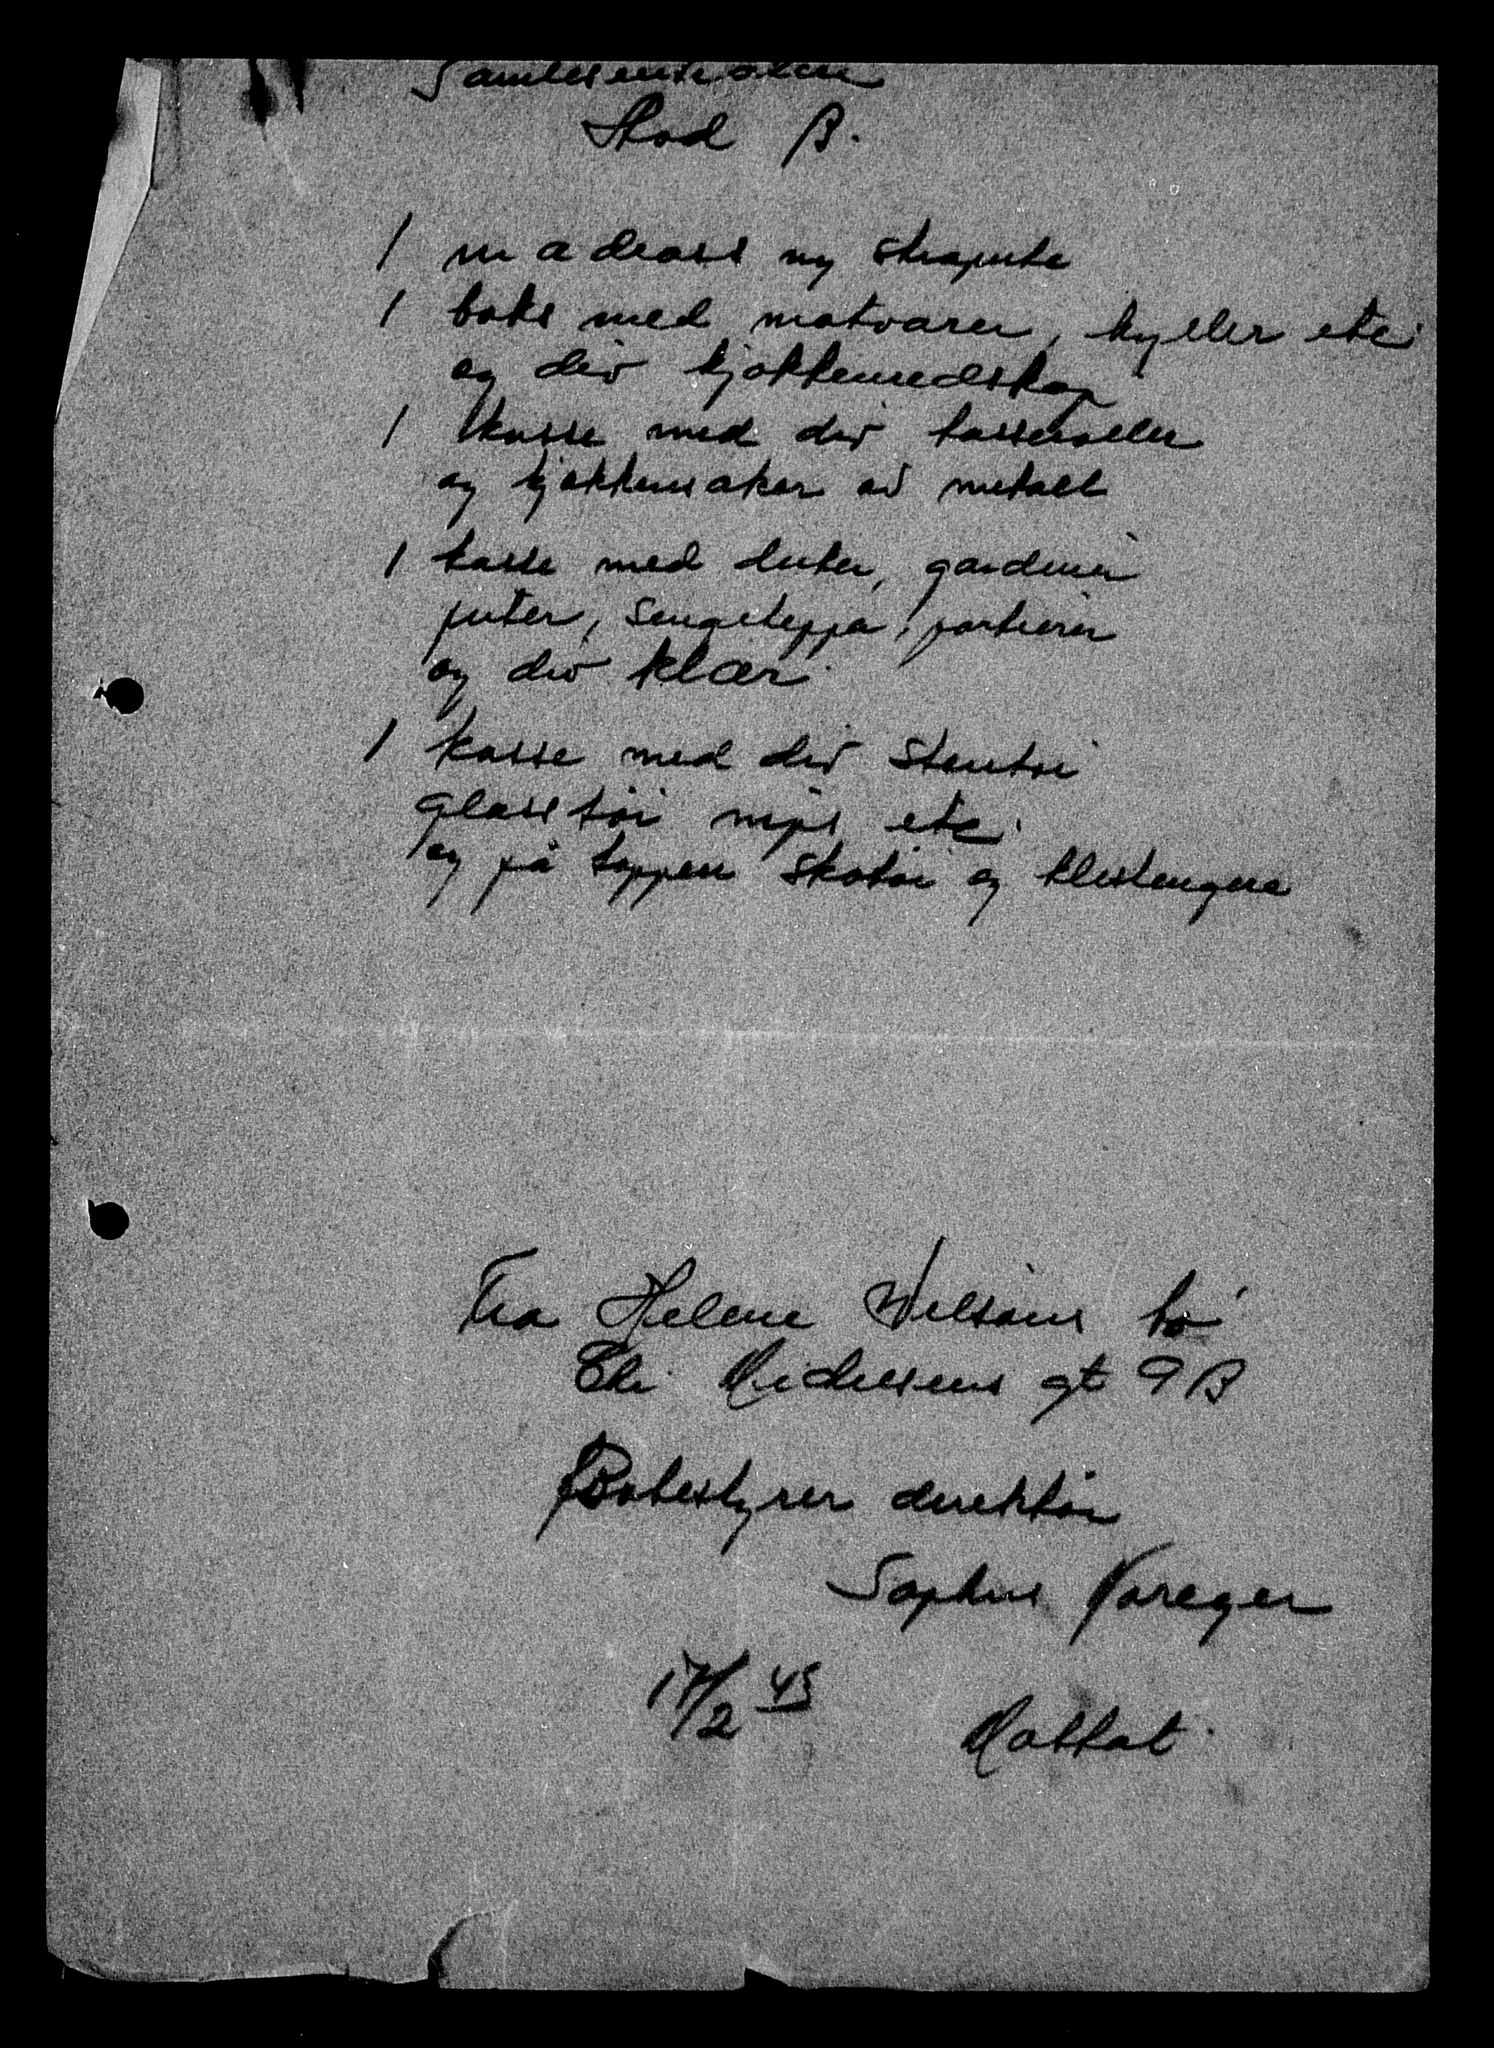 Samlesentralen
Skod B.
1 madrass og skrapute
1 boks med matvarer, hyller etc
og div kjøkkenredskap
1 kasse med div kasseroller
og kjøkkensaker av metall
1 kasse med duker, gardiner
puter, sengeteppa, portierer
og div klær.
1 kasse med div stentøi
glasstøi nips etc.
og på toppen skotøi og kleshengere
Fra Helene Wilsons bo
Chr. Michelsens gt 9 B
Bobestyrer direktør
Sophus
17/2 43
Mottat